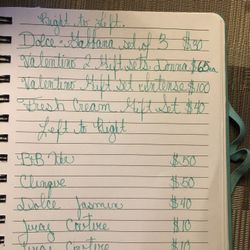 Right to Left.
Dolce - Gabbana set of 3 $30
Valentino 2 Gift sets Donna $60
Valentino Gift Set intense $100
Fresh Cream Gift Set $40
Left to Right
$50
Clinque $50
Dolce Jasmin $40
Juicy Coutire $10
Juicy Coutire $10